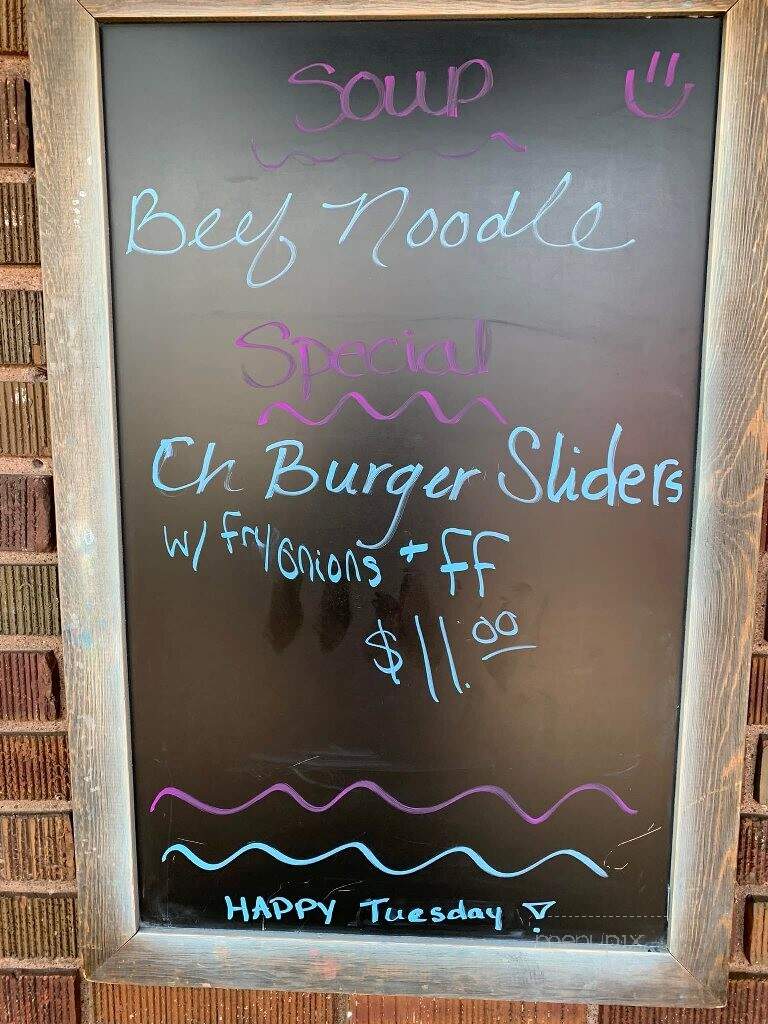 Soup
Beef Noodle
Special
Ch Burger Sliders
w/ Fry Onions + FF
$11.00
HAPPY Tuesday !
menupix